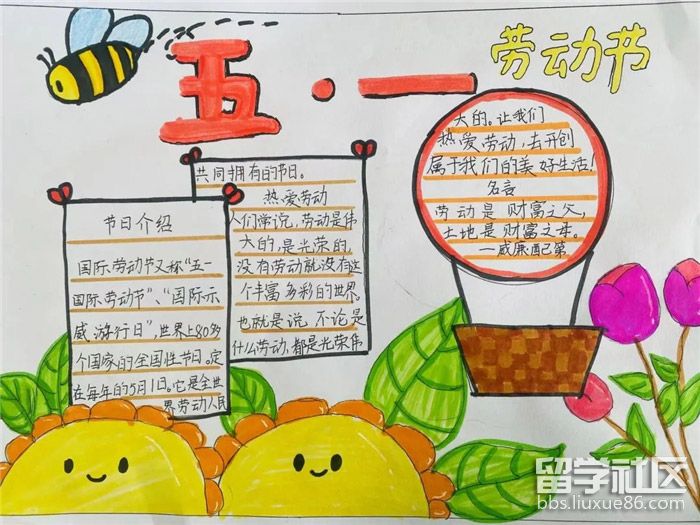 五·一
劳动节
节日介绍
国际劳动节又称"五一
国际劳动节"、"国际示
威游行日",世界上80多
个国家的全国性节日。定
在每年的5月1日。它是全世
界劳动人民
共同拥有的节日。
热爱劳动
人们常说,劳动是伟
大的,是光荣的。
没有劳动就没有这
个丰富多彩的世界。
也就是说,不论是
什么劳动,都是光荣伟
大的。让我们
热爱劳动,去开创
属于我们的美好生活!
名言
劳动是财富之父,
土地是财富之母。
—威廉配第
留学社区
bbs.liuxue86.com